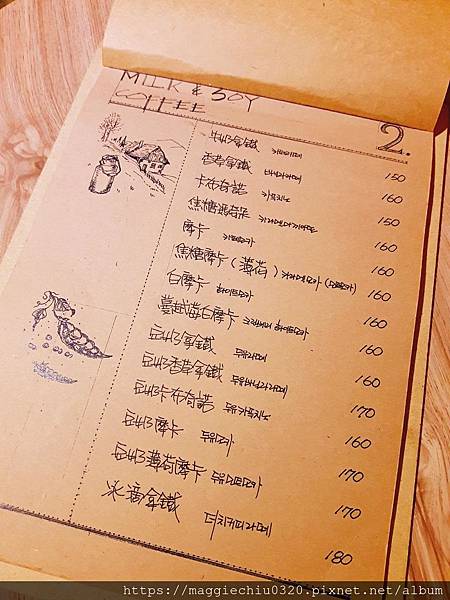 MILK & SOY
COFFEE
2.
牛奶拿鐵 카페라떼 150
香草拿鐵 바닐라라떼 160
卡布奇諾 카푸치노 150
焦糖瑪奇朵 카라멜마끼아또 160
摩卡 카페모카 160
焦糖摩卡(薄荷) 카라멜모카 (민트모카) 160
白摩卡 화이트모카 160
蔓越莓白摩卡 크랜베리 화이트모카 160
豆奶拿鐵 두유라떼 160
豆奶香草拿鐵 두유바닐라라떼 170
豆奶卡布奇諾 두유카푸치노 160
豆奶摩卡 두유모카 170
豆奶薄荷摩卡 두유민트모카 170
冰滴拿鐵 더치커피라떼 180
https://maggiechiu0320.pixnet.net/album